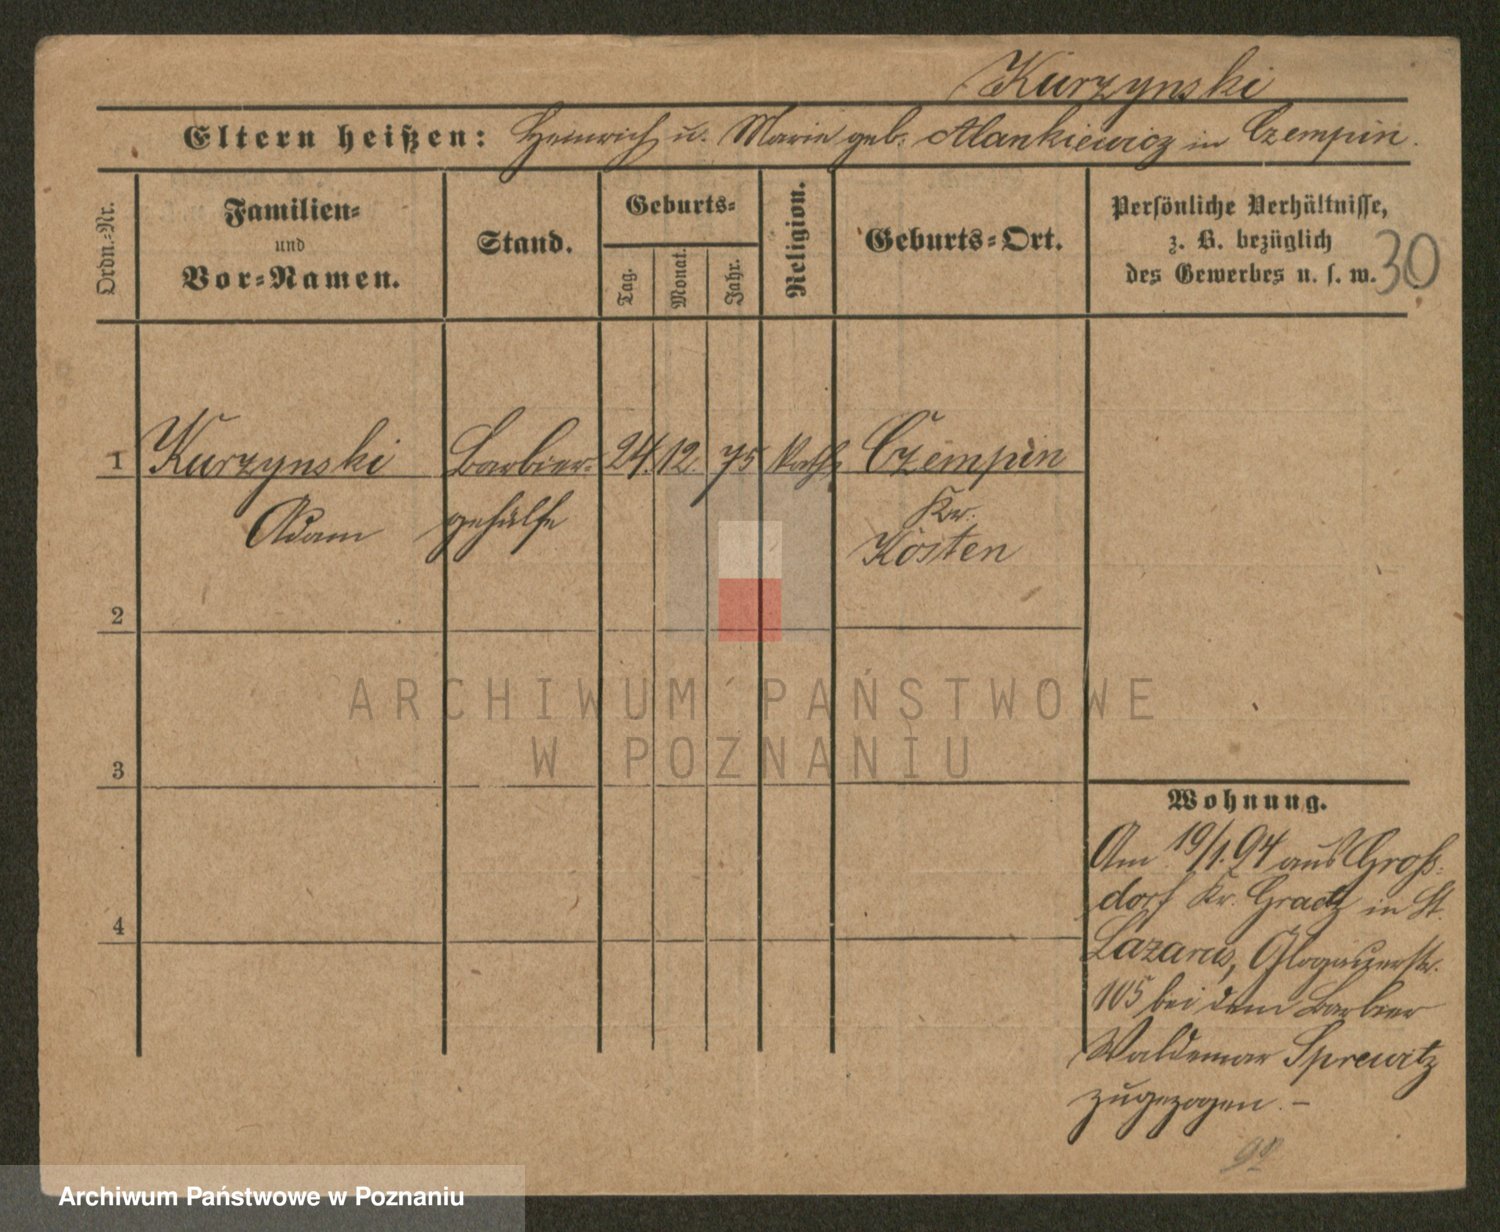 Kurzynski
Eltern heißen: Heinrich u. Marie geb. Alankiewicz in Czempin.
Ordn.-Nr.
Familien-
und
Vor-Namen.
Stand.
Geburts-
Tag.
Monat.
Jahr.
Religion.
Geburts-Ort.
Persönliche Verhältnisse,
z. B. bezüglich
des Gewerbes u. s. w.
30
1 Kurzynski Barbier- 24. 12. 75 kath. Czempin
Adam gehülfe Kr.
Kosten
2
3
4
Wohnung.
Am 19/1. 94 aus Groß-
dorf Kr. Graetz in St.
Lazarus, Glogauerstr.
105 bei dem Barbier
Waldemar Sprewitz
zugezogen. –
ARCHIWUM PAŃSTWOWE
W POZNANIU
Archiwum Państwowe w Poznaniu